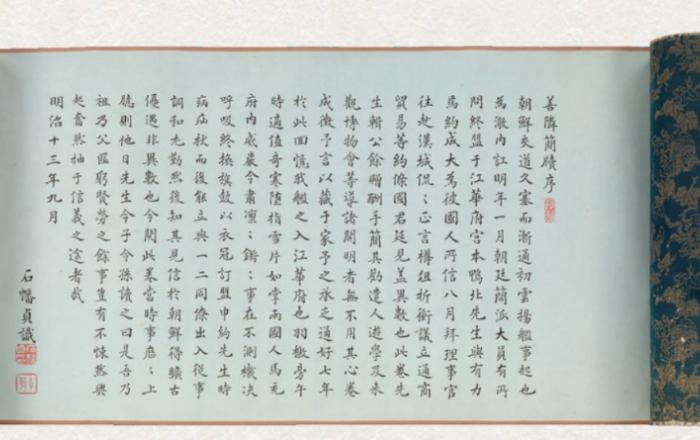 善隣簡牘序
朝鮮交道久塞而漸通初雲揚艦事起也
為激內訌明年一月朝廷簡派大員有所
問終盟于江華府宮本鴨北先生與有力
焉約成大為彼國人所信八月拜理事官
往赴漢城侃〻正言樽俎折衝議立通商
貿易等約條國君延見蓋異數也此卷先
生輯公餘贈酬手簡其勸遣人遊學及來
觀博物會等導諸開明者無不用其心卷
成徵予言以藏于家予之承乏通好七年
於此回憶我艦之入江華府也羽檄旁午
時適值奇寒墮指雪片如掌兩國人馬充
府內威嚴令肅凛〻鏘〻事在不測機決
呼吸終換旗鼓以衣冠訂盟申約先生時
病痁秋而後能立與一二同僚出入從事
調和尤勤然後知其見信於朝鮮得曠古
優遇非異數也今閱此卷當時事歷〻上
臆則他日先生令子令孫讀之曰是吾乃
祖乃父匪躬賢勞之餘事豈有不悚然興
起奮然柚于信義之途者哉
明治十三年九月
石幡貞識